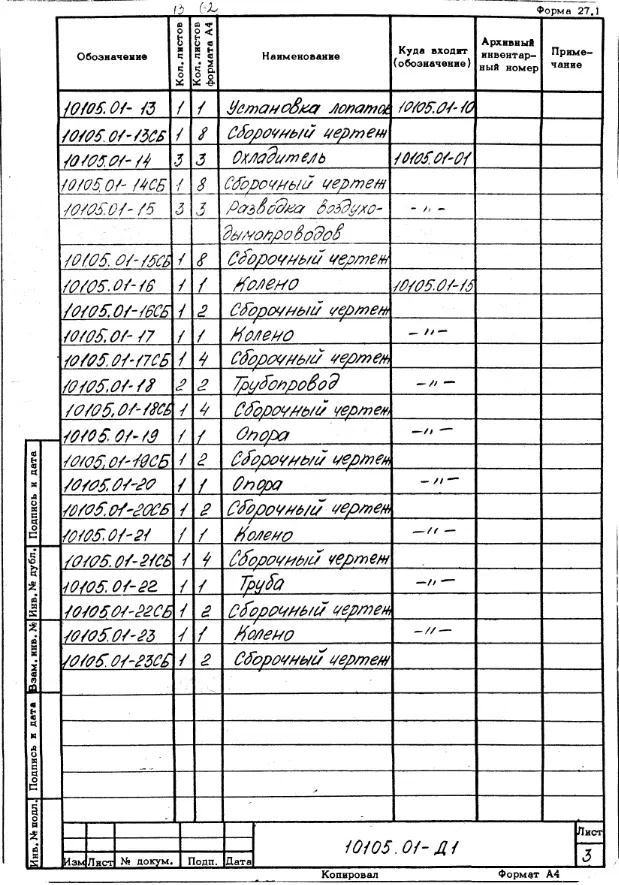 13 62
Форма 27.1
Обозначение Кол. листов Кол. листов формата А4 Наименование Куда входит (обозначение) Архивный инвентарный номер Примечание
10105.01-13 1 1 Установка лопаток 10105.01-10
10105.01-13СБ 1 8 Сборочный чертеж
10105.01-14 3 3 Охладитель 10105.01-01
10105.01-14СБ 1 8 Сборочный чертеж
10105.01-15 3 3 Разводка воздухо- - " -
дымопроводов
10105.01-15СБ 1 8 Сборочный чертеж
10105.01-16 1 1 Колено 10105.01-15
10105.01-16СБ 1 2 Сборочный чертеж
10105.01-17 1 1 Колено - " -
10105.01-17СБ 1 4 Сборочный чертеж
10105.01-18 2 2 Трубопровод - " -
10105.01-18СБ 1 4 Сборочный чертеж
10105.01-19 1 1 Опора - " -
10105.01-19СБ 1 2 Сборочный чертеж
10105.01-20 1 1 Опора - " -
10105.01-20СБ 1 2 Сборочный чертеж
10105.01-21 1 1 Колено - " -
10105.01-21СБ 1 4 Сборочный чертеж
10105.01-22 1 1 Труба - " -
10105.01-22СБ 1 2 Сборочный чертеж
10105.01-23 1 1 Колено - " -
10105.01-23СБ 1 2 Сборочный чертеж
Инв. № подл. Подпись и дата Взам. инв. № Инв. № дубл. Подпись и дата
Изм Лист № докум. Подп. Дата
10105.01-Д1
Лист
3
Копировал Формат А4